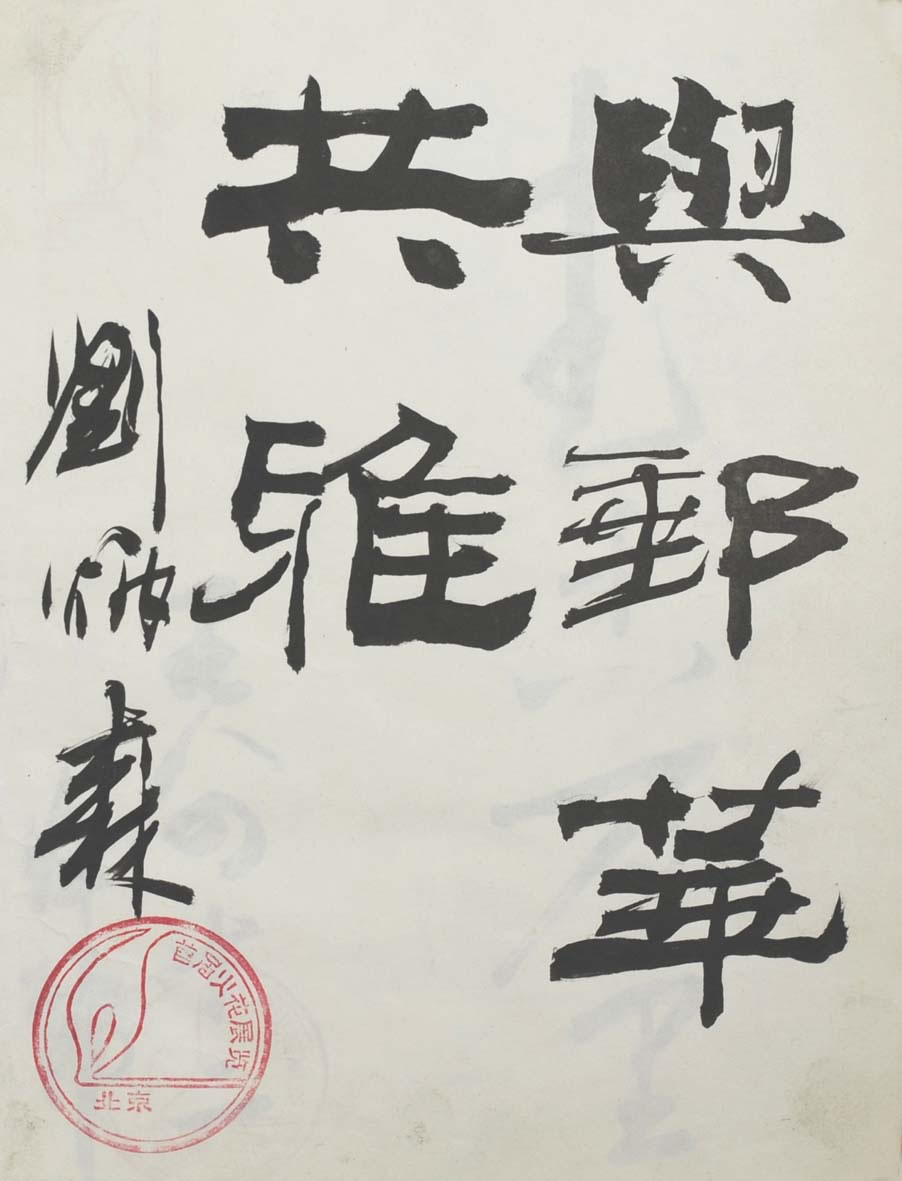 與郵華
共雅
劉炳森
首届火花展览
北京